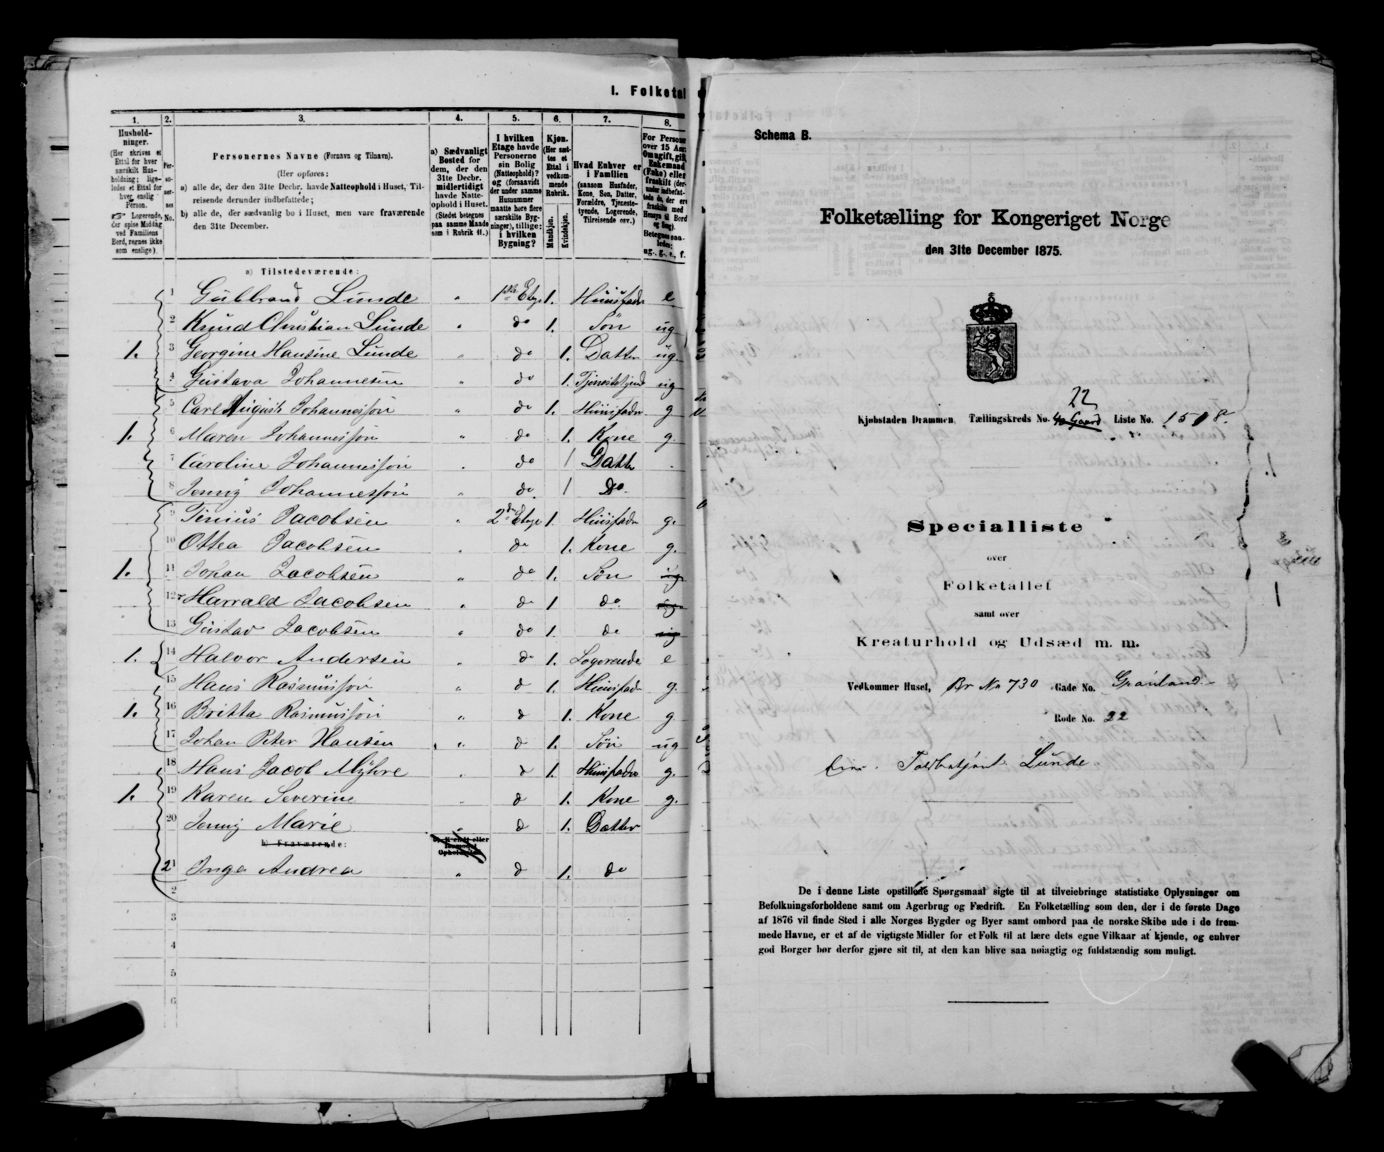 I. Folketal
1. 2. 3. 4. 5. 6. 7. 8.
Hushold-
ninger.
(Her skrives et
Ettal for hver
særskilt Hus-
holdning; lige-
ledes et Ettal for
hver, enslig
Person.
Logerende,
der spise Middag
ved Familiens
Bord, regnes ikke
som enslige).
Per-
soner-
nes
No.
Personernes Navne (Fornavn og Tilnavn).
(Her opføres:
a) alle de, der den 31te Decbr. havde Natteophold i Huset, Til-
reisende derunder indbefattede;
b) alle de, der sædvanlig bo i Huset, men vare fraværende
den 31te December.
a) Sædvanligt
Bosted for
dem, der den
31te Decbr.
midlertidigt
havde Natte-
ophold i Huset.
(Stedet betegnes
paa samme Maade
som i Rubrik 11.)
I hvilken
Etage havde
Personerne
sin Bolig
(Natteophold)?
og (forsaavidt
der under samme
Husnummer
maatte høre flere
særskilte Byg-
ninger), tillige:
i hvilken
Bygning?
Kjøn.
(Her sæt-
tes et
Ettal i
vedkom-
mende
Rubrik.
Mandkjøn.
Kvindekjøn.
Hvad Enhver er
i Familien
(saasom Husfader,
Kone, Søn, Datter,
Forældre, Tjeneste-
tyende, Logerende,
Tilreisende osv.)
For Personer
over 15 Aar:
Om ugift, gift,
Enkemand
(Enke) eller
fraskilt
a) Tilstedeværende:
1 Gulbrand Lunde " 1ste Etage 1. Huusfader e
2 Knud Christian Lunde " do 1. Søn ug
1. 3 Georgine Hansine Lunde " do 1. Datter ug.
4 Gustava Johannesen " do 1. Tjenestetjend ug
5 Carl August Johannesson " do 1. Huusfader g
1. 6 Maren Johannesson " do 1. Kone g.
7 Caroline Johannesson " do 1 Datter
8 Jenny Johannesson " do 1 Do.
9 Tinius Jacobsen " 2den Etage 1. Huusfader g.
10 Othea Jacobsen do 1. Kone g.
1. 11 Johan Jacobsen " do 1. Søn ug
12 Harrald Jacobsen " do 1 do. ug
13 Gustav Jacobsen " do 1 do ug
1. 14 Halvor Andersen " do 1. Logerende e
15 Hans Rasmusson " d 1. Huusfader g.
1. 16 Britta Rasmusson " d 1. Kone g
17 Johan Peter Hansen " d 1. Søn ug
18 Hans Jacob Myhre " d 1. Huusfader g.
1. 19 Karen Severine d 1. Kone g.
20 Jenny Marie " d 1. Datter
b) Fraværende:
21 Inga Andrea " d 1. do
2
3
4
5
6
Schema B.
Folketælling for Kongeriget Norge
den 31te December 1875.
22
Kjøbstaden Drammen. Tællingskreds No. Liste No. 1508
Specialliste
over
Folketallet
samt over
Kreaturhold og Udsæd m. m.
Vedkommer Huset, Br No 730 Gade No. Grønland
Rode No. 22
Eier. Toldbetjent Lunde
De i denne Liste opstillede Spørgsmaal sigte til at tilveiebringe statistiske Oplysninger om
Befolkningsforholdene samt om Agerbrug og Fædrift. En Folketælling som den, der i de første Dage
af 1876 vil finde Sted i alle Norges Bygder og Byer samt ombord paa de norske Skibe ude i de frem-
mede Havne, er et af de vigtigste Midler for et Folk til at lære dets egne Vilkaar at kjende, og enhver
god Borger bør derfor gjøre sit til, at den kan blive saa nøiagtig og fuldstændig som muligt.